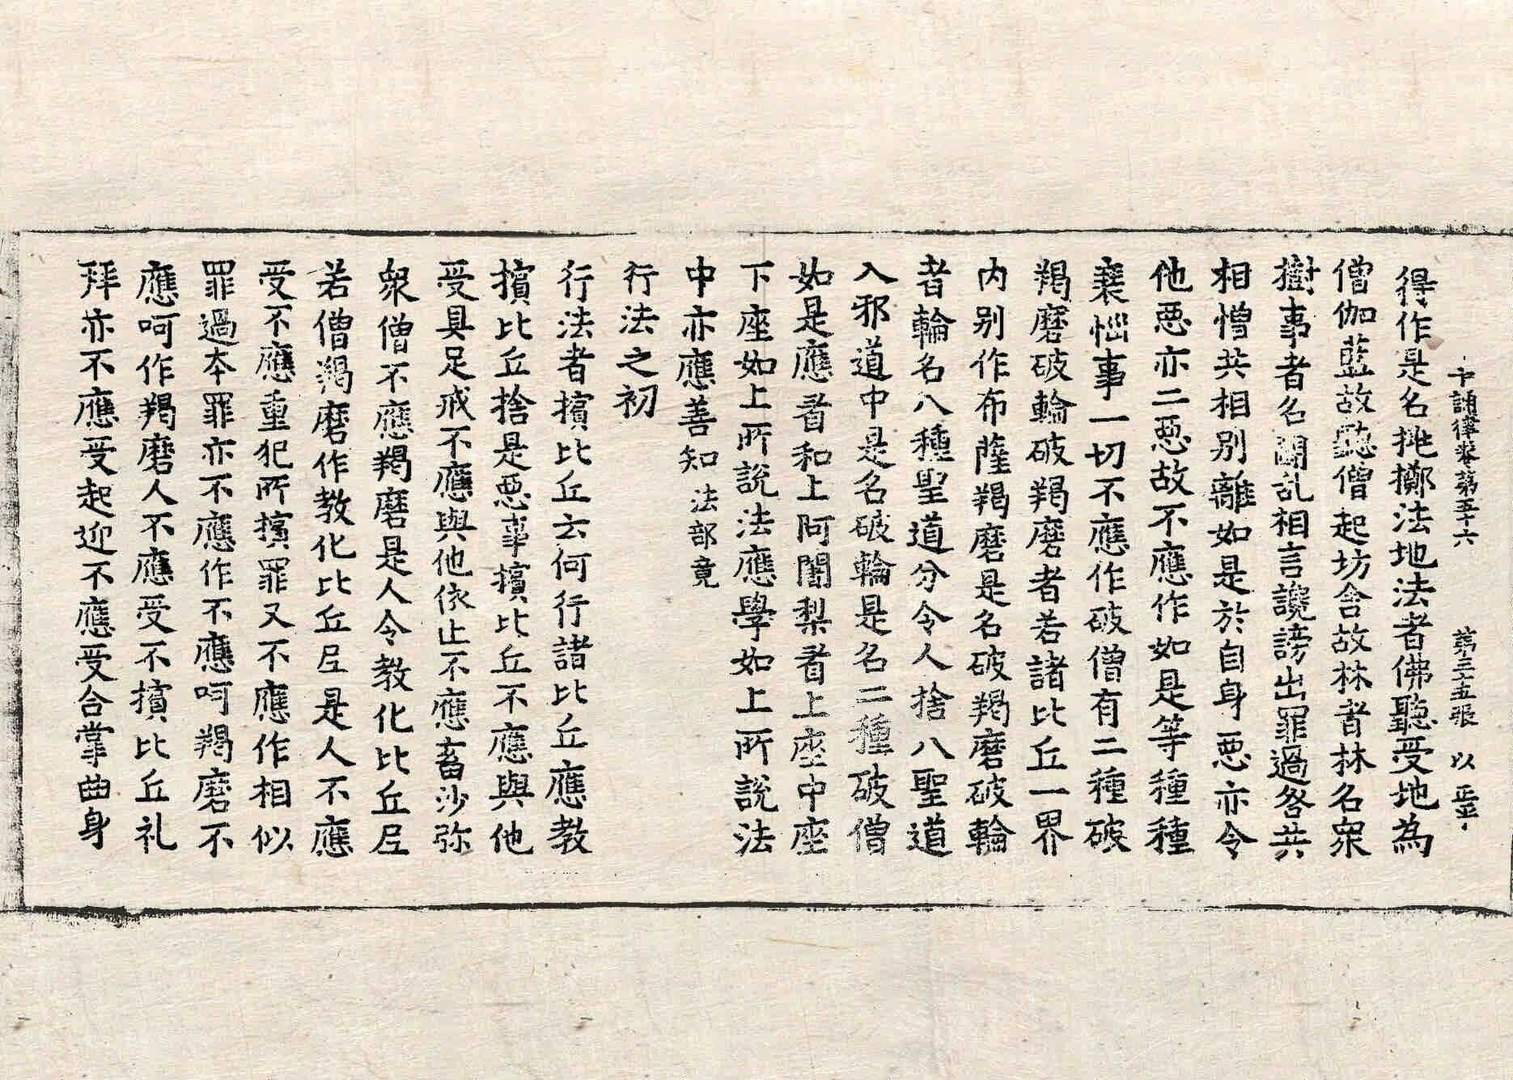 十誦律卷第五十六 第三十五張 以
得作是名抛擲法地法者佛聽受地為
僧伽藍故聽僧起坊舍故林者林名眾
樹事者名鬪乱相言讒謗出罪過各共
相憎共相别離如是於自身惡亦令
他惡亦二惡故不應作如是等種種
衰惱事一切不應作破僧有二種破
羯磨破輪破羯磨者若諸比丘一界
内别作布薩羯磨是名破羯磨破輪
者輪名八種聖道分令人捨八聖道
入邪道中是名破輪是名二種破僧
如是應看和上阿闍梨看上座中座
下座如上所說法應學如上所說法
中亦應善知 法部竟
行法之初
行法者擯比丘云何行諸比丘應教
擯比丘捨是惡事擯比丘不應與他
受具足戒不應與他依止不應畜沙弥
眾僧不應羯磨是人令教化比丘尼
若僧羯磨作教化比丘尼是人不應
受不應重犯所擯罪又不應作相似
罪過本罪亦不應作不應呵羯磨不
應呵作羯磨人不應受不擯比丘礼
拜亦不應受起迎不應受合掌曲身